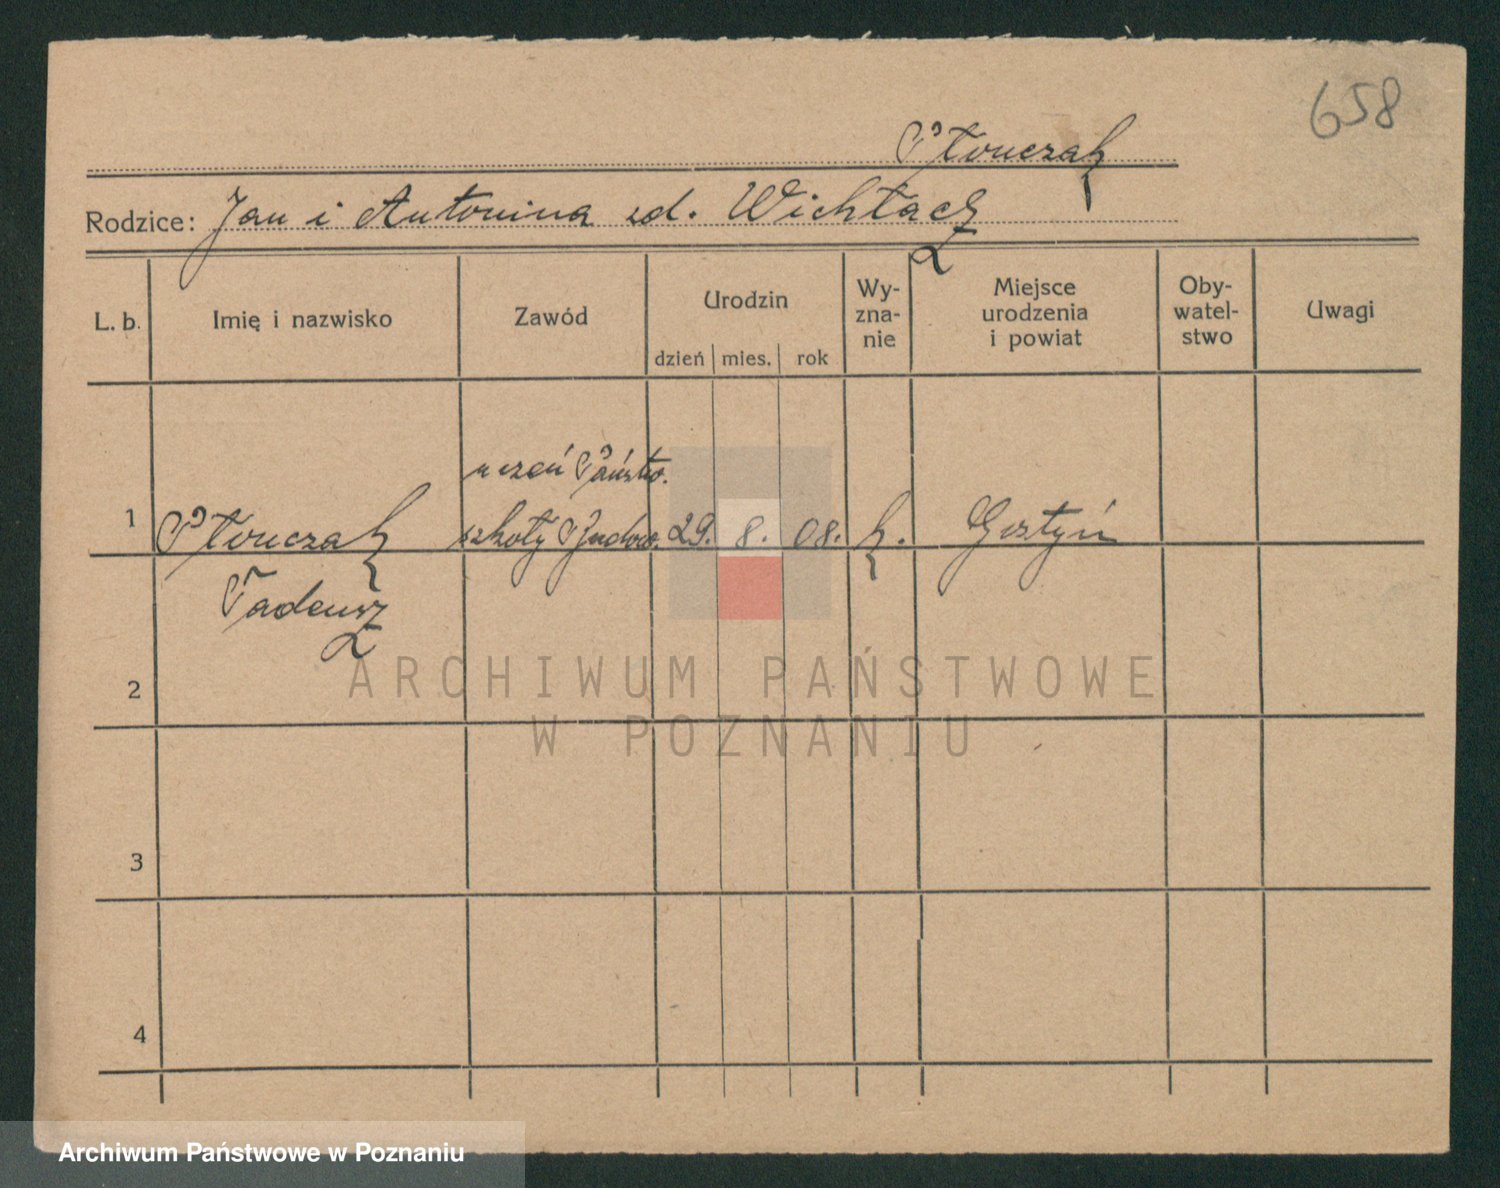 658
Ptouczak
Rodzice: Jan i Antonina zd. Wichłacz
L. b.
Imię i nazwisko
Zawód
Urodzin
dzień mies. rok
Wy-
zna-
nie
Miejsce
urodzenia
i powiat
Oby-
watel-
stwo
Uwagi
1
Ptouczak
Tadeusz
uczeń Państw.
szkoły Budow.
29. 8. 08.
k.
Gostyń
2
3
4
ARCHIWUM PAŃSTWOWE
W POZNANIU
Archiwum Państwowe w Poznaniu